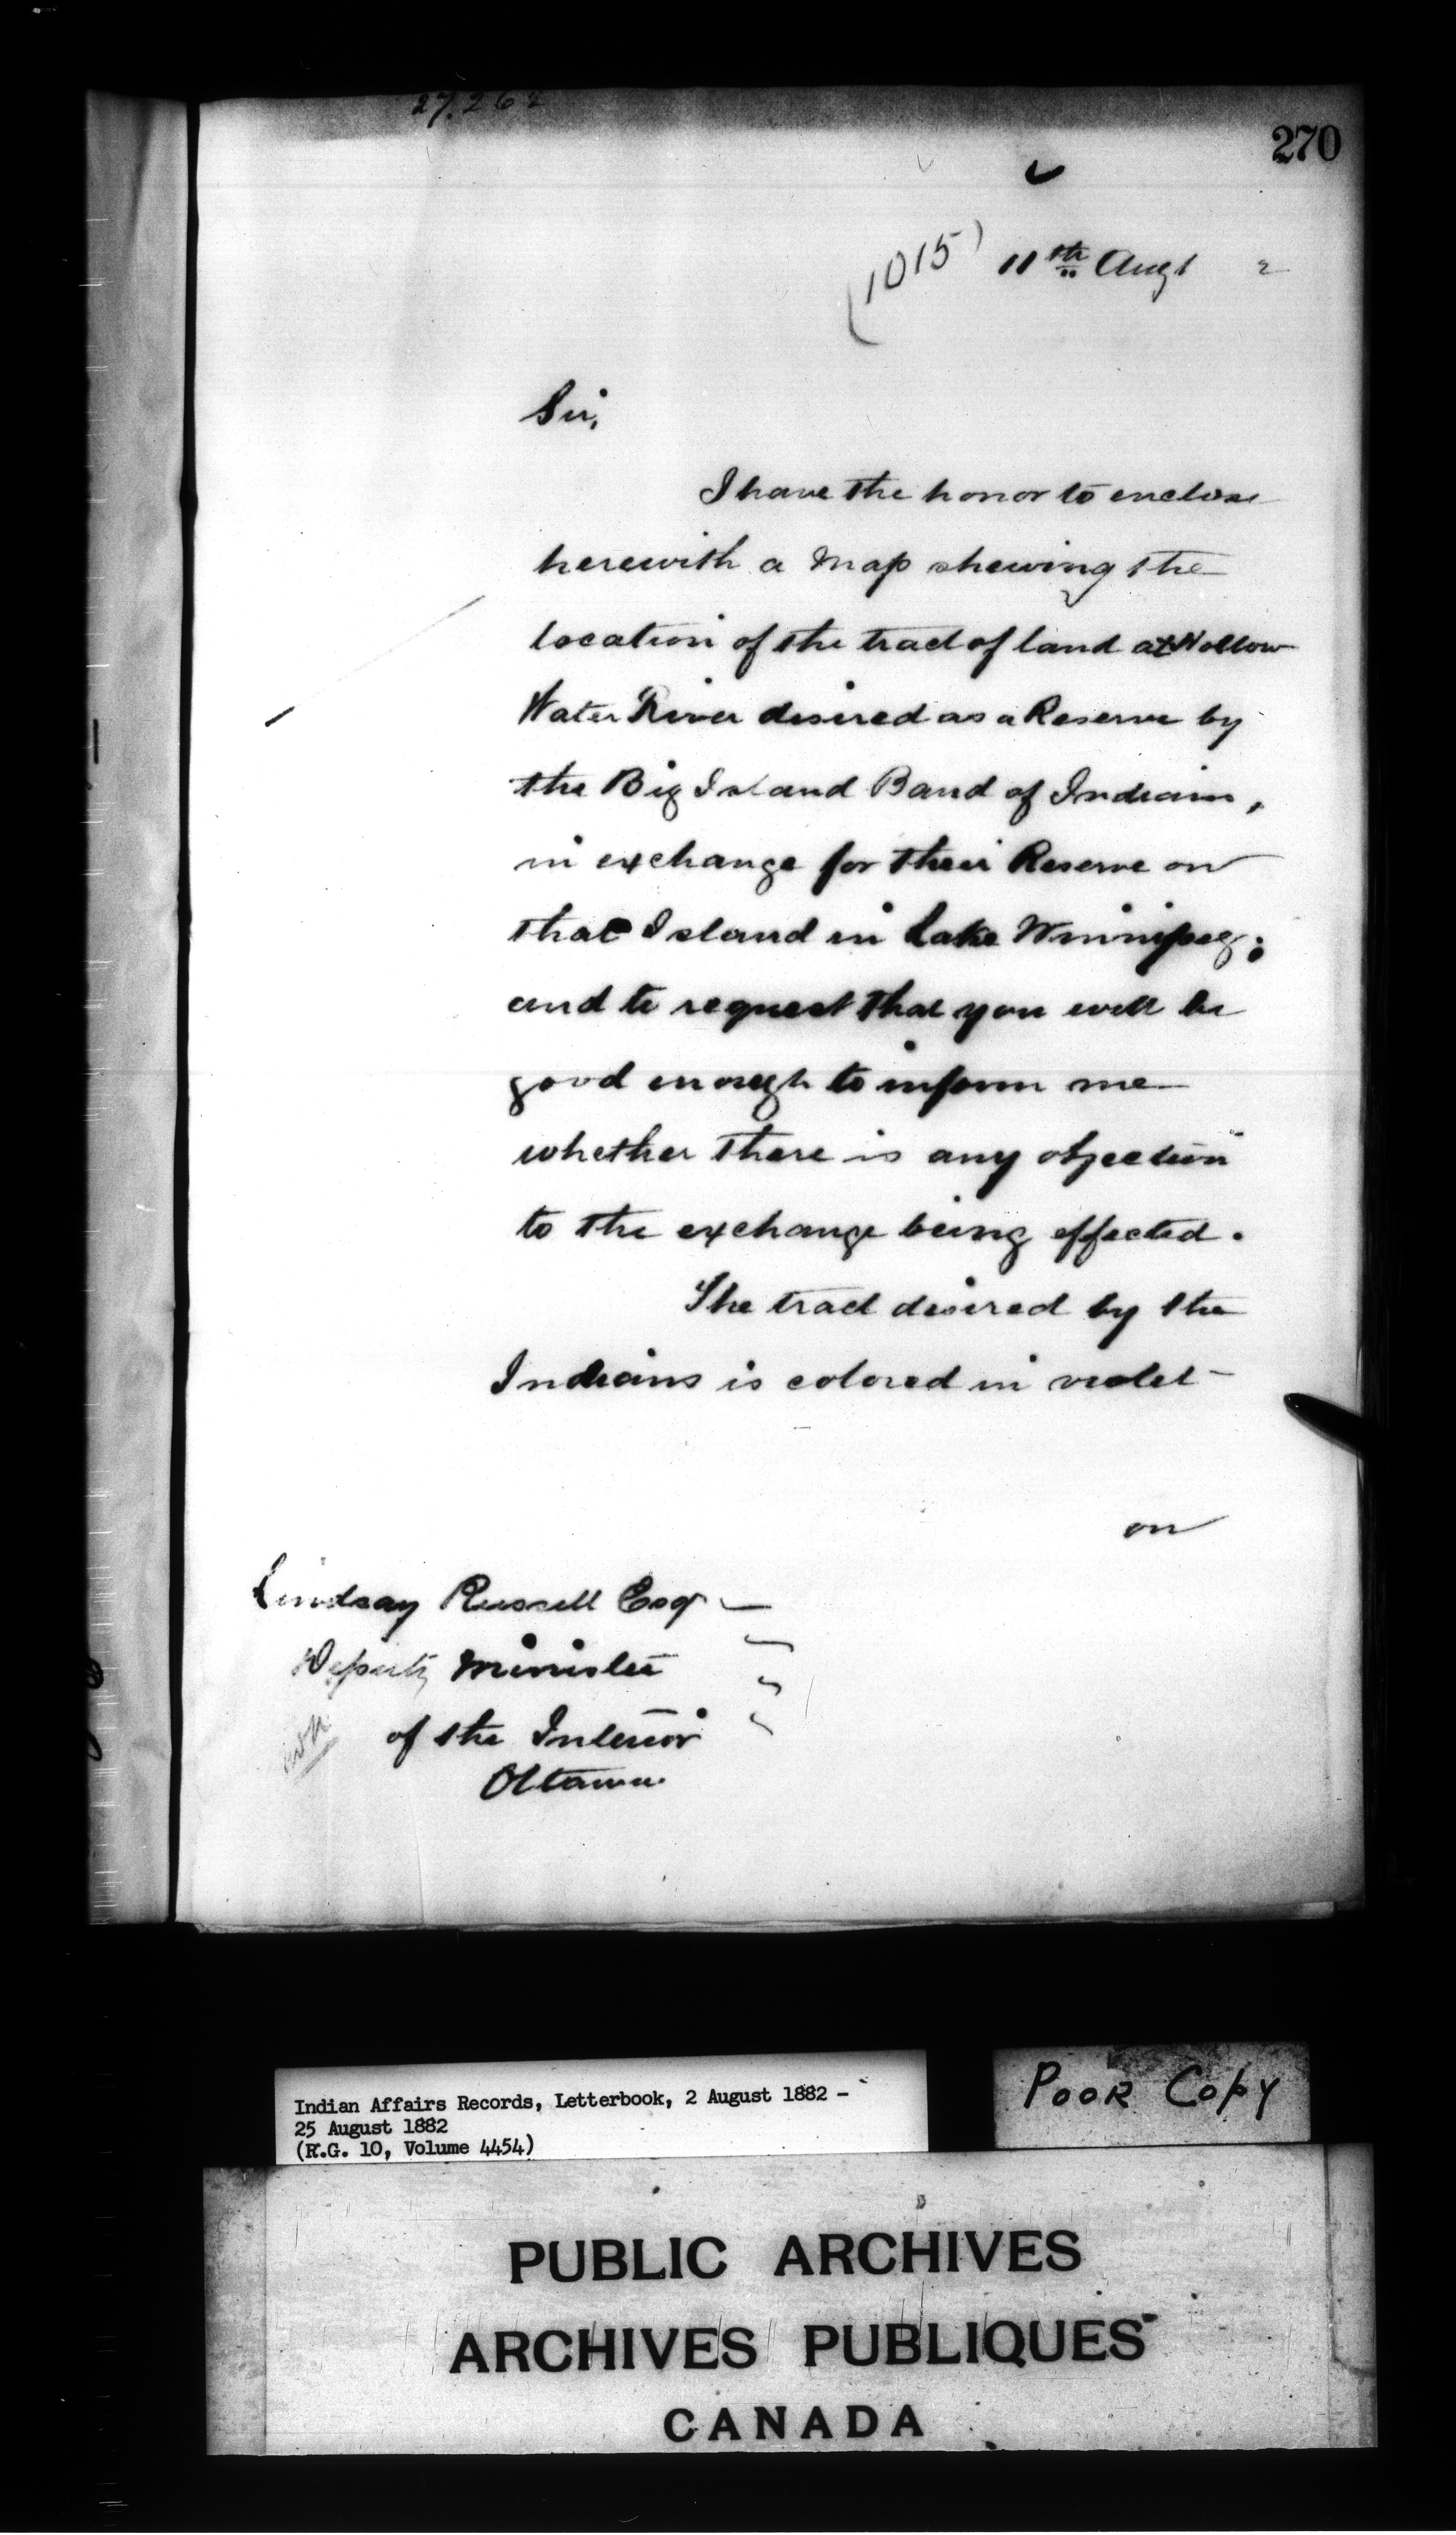 27.262
270
(1015) 11th Augt 2
Sir,
I have the honor to enclose
herewith a Map shewing the
location of the tract of land at Hollow
Water River desired as a Reserve by
the Big Island Band of Indians,
in exchange for their Reserve on
that Island in Lake Winnipeg;
and to request that you will be
good enough to inform me
whether there is any objection
to the exchange being effected.
The tract desired by the
Indians is colored in violet
on
Lindsay Russell Esqr
Deputy Minister
of the Interior
Ottawa.
Indian Affairs Records, Letterbook, 2 August 1882 -
25 August 1882
(R.G. 10, Volume 4454)
POOR COPY
PUBLIC ARCHIVES
ARCHIVES PUBLIQUES
CANADA